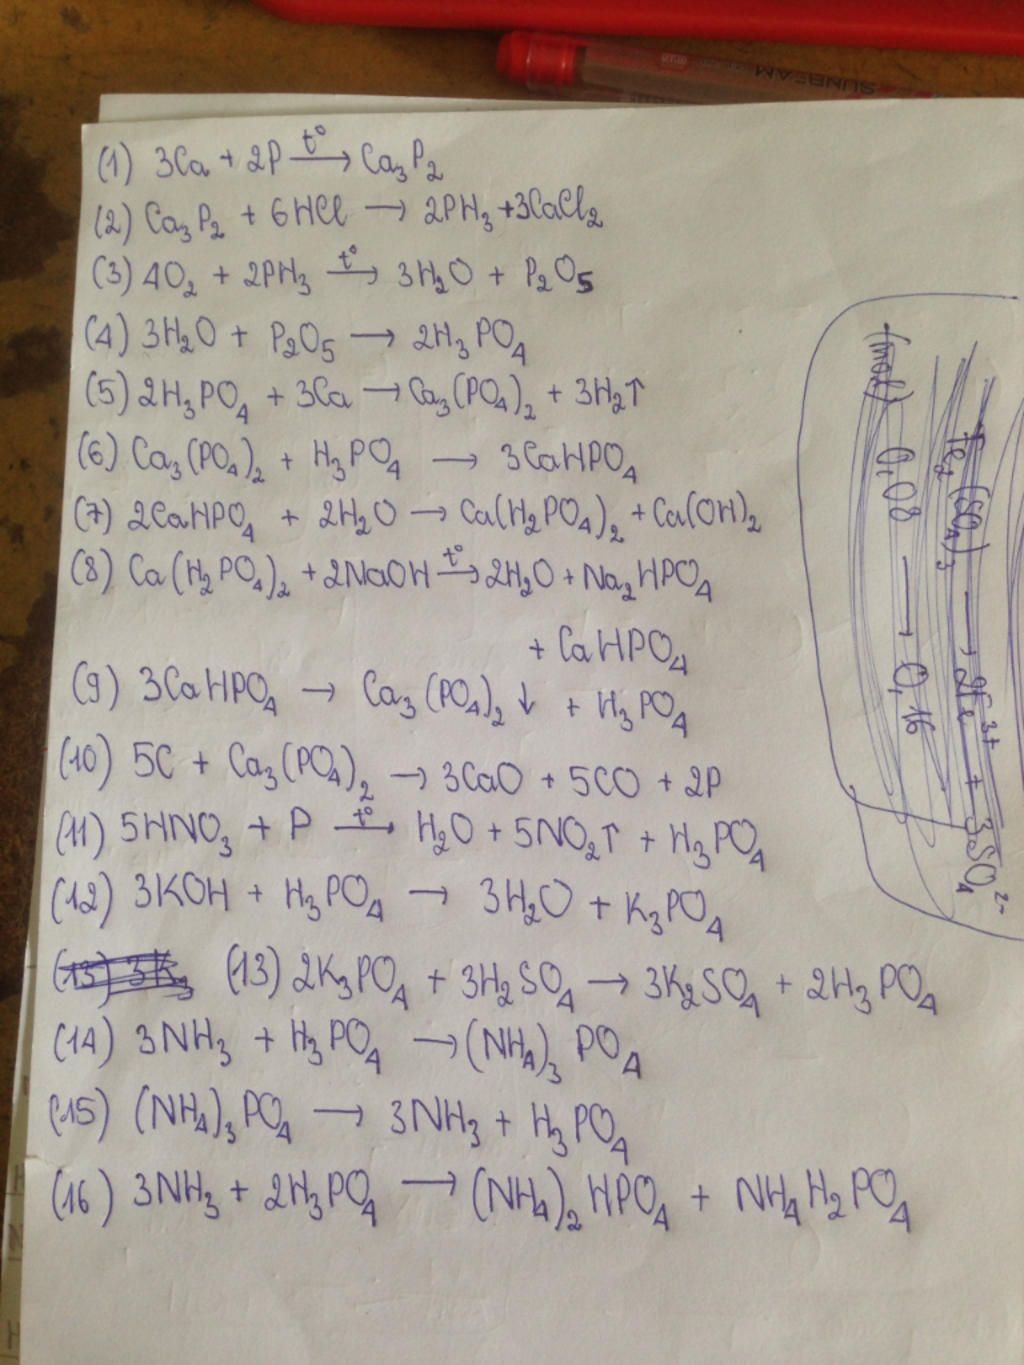 SUNBEAM
(1) 3Ca + 2P —t°→ Ca₃P₂
(2) Ca₃P₂ + 6HCl → 2PH₃ + 3CaCl₂
(3) 4O₂ + 2PH₃ —t°→ 3H₂O + P₂O₅
(4) 3H₂O + P₂O₅ → 2H₃PO₄
(5) 2H₃PO₄ + 3Ca → Ca₃(PO₄)₂ + 3H₂↑
(6) Ca₃(PO₄)₂ + H₃PO₄ → 3CaHPO₄
(7) 2CaHPO₄ + 2H₂O → Ca(H₂PO₄)₂ + Ca(OH)₂
(8) Ca(H₂PO₄)₂ + 2NaOH —t°→ 2H₂O + Na₂HPO₄
+ CaHPO₄
(9) 3CaHPO₄ → Ca₃(PO₄)₂↓ + H₃PO₄
(10) 5C + Ca₃(PO₄)₂ → 3CaO + 5CO + 2P
(11) 5HNO₃ + P —t°→ H₂O + 5NO₂↑ + H₃PO₄
(12) 3KOH + H₃PO₄ → 3H₂O + K₃PO₄
(13) 3K₃ (13) 2K₃PO₄ + 3H₂SO₄ → 3K₂SO₄ + 2H₃PO₄
(14) 3NH₃ + H₃PO₄ → (NH₄)₃PO₄
(15) (NH₄)₃PO₄ → 3NH₃ + H₃PO₄
(16) 3NH₃ + 2H₃PO₄ → (NH₄)₂HPO₄ + NH₄H₂PO₄
Fe₂(SO₄)₃ → 2Fe³⁺ + 3SO₄²⁻
(mol) 0,08 → 0,16